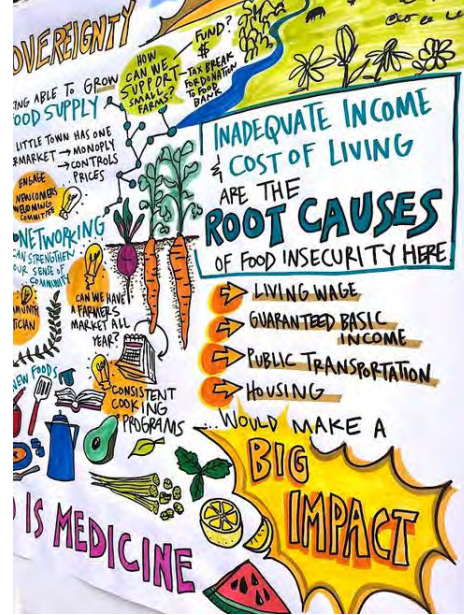 OVEREIGNTY
ING ABLE TO GROW
OOD SUPPLY
LITTLE TOWN HAS ONE
RMARKET → MONOPLY
→ CONTROLS
PRICES
ENGAGE
NEWCOMERS
WELCOMING
COMMITTEE
NETWORKING
AN STRENGTHEN
OUR SENSE OF
COMMUNITY
HOW
CAN WE
SUPPORT
SMALL
FARMS?
FUND?
$
TAX BREAK
FOR DONATION
TO FOOD
BANK
CAN WE HAVE
A FARMERS
MARKET ALL
YEAR?
NEW FOODS
CONSISTENT
COOKING
PROGRAMS
IS MEDICINE
INADEQUATE INCOME
& COST OF LIVING
ARE THE
ROOT CAUSES
OF FOOD INSECURITY HERE
LIVING WAGE
GUARANTEED BASIC
INCOME
PUBLIC TRANSPORTATION
HOUSING
...WOULD MAKE A
BIG
IMPACT